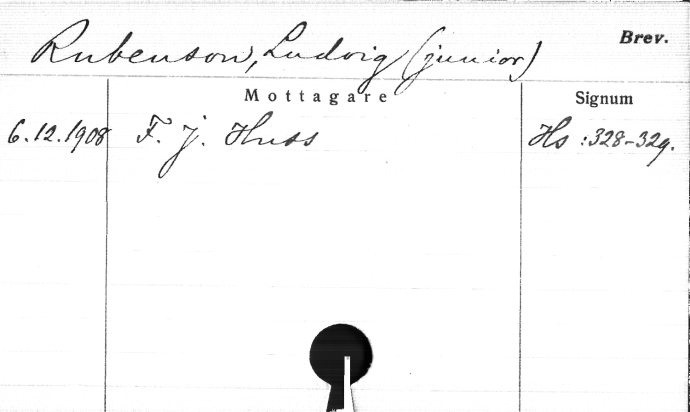 Rubenson, Ludvig (junior)
Brev.
Mottagare
Signum
6.12.1908 F. J. Huss Hs :328-329.